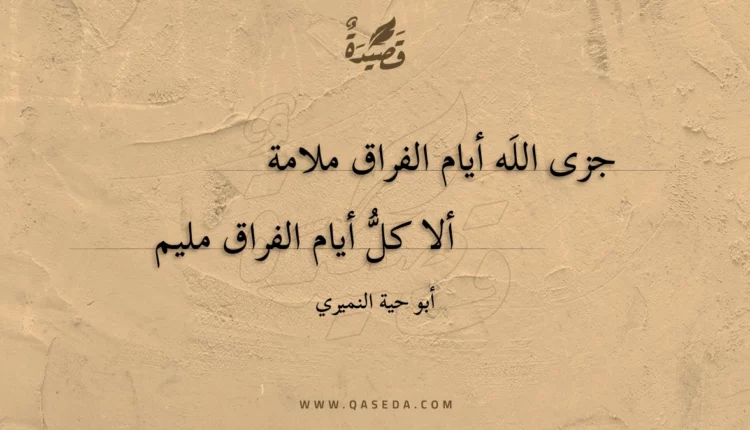 قَصِيْدَةٌ
جزى اللَه أيام الفراق ملامة
ألا كلُّ أيام الفراق مليم
أبو حية النميري
WWW.QASEDA.COM